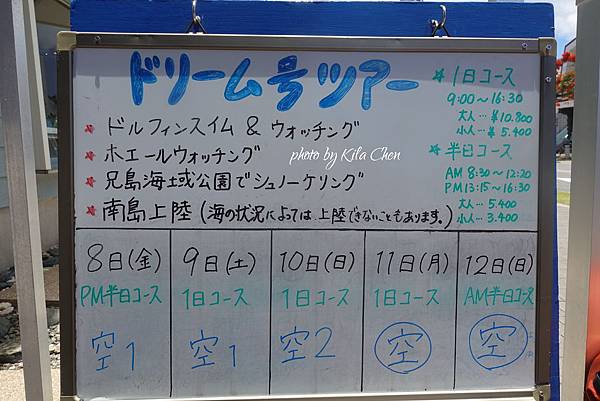 ドリーム号ツアー
★ ドルフィンスイム & ウォッチング
★ ホエールウォッチング
★ 兄島海域公園でシュノーケリング
★ 南島上陸 (海の状況によっては、上陸できないこともあります。)
★ 1日コース
9:00～16:30
大人… ¥10.800
小人… ¥5.400
★ 半日コース
AM 8:30～12:20
PM 13:15～16:30
大人… 5.400
小人… 3.400
photo by Kifa Chen
8日(金) 9日(土) 10日(日) 11日(月) 12日(日)
PM半日コース 1日コース 1日コース 1日コース AM半日コース
空1 空1 空2 空 空